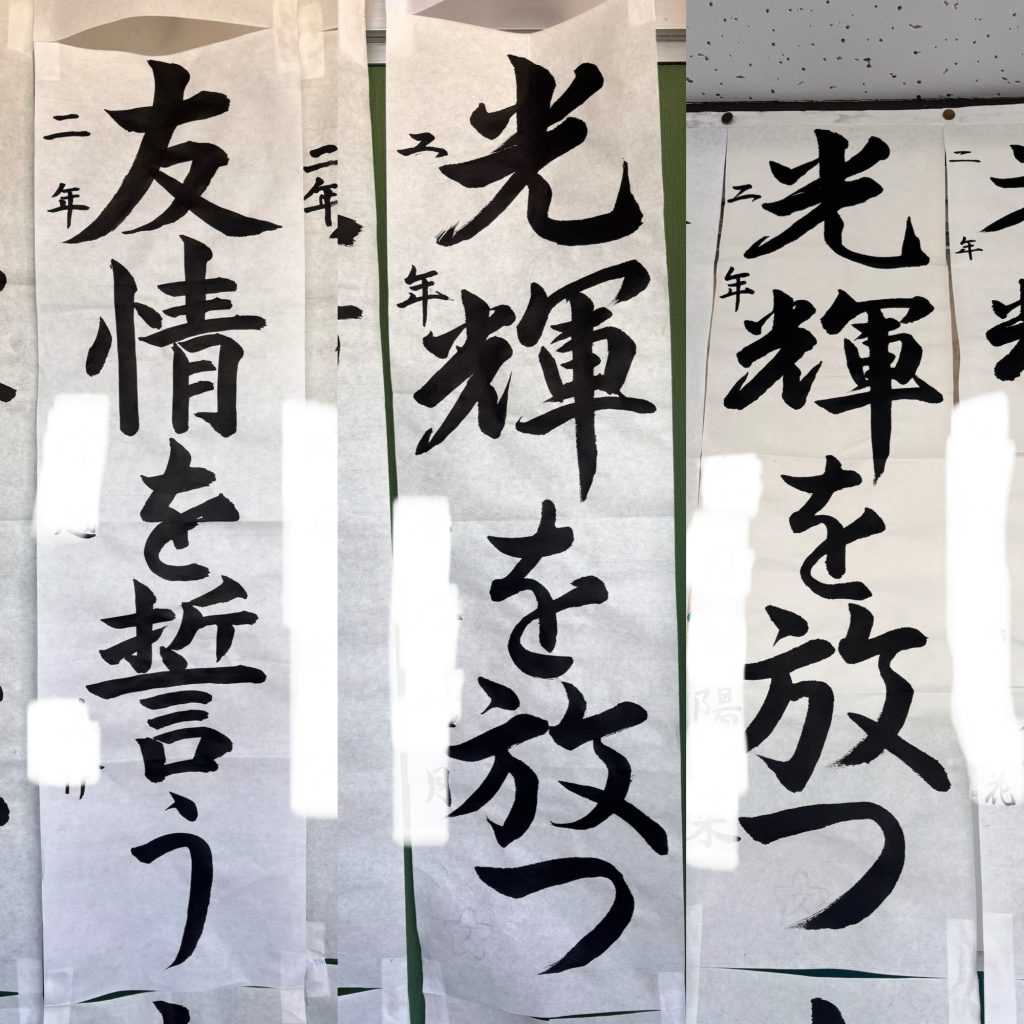 友情を誓う
二年
二年
光輝を放つ
二年
月
光輝を放つ
二年
陽
二年
花